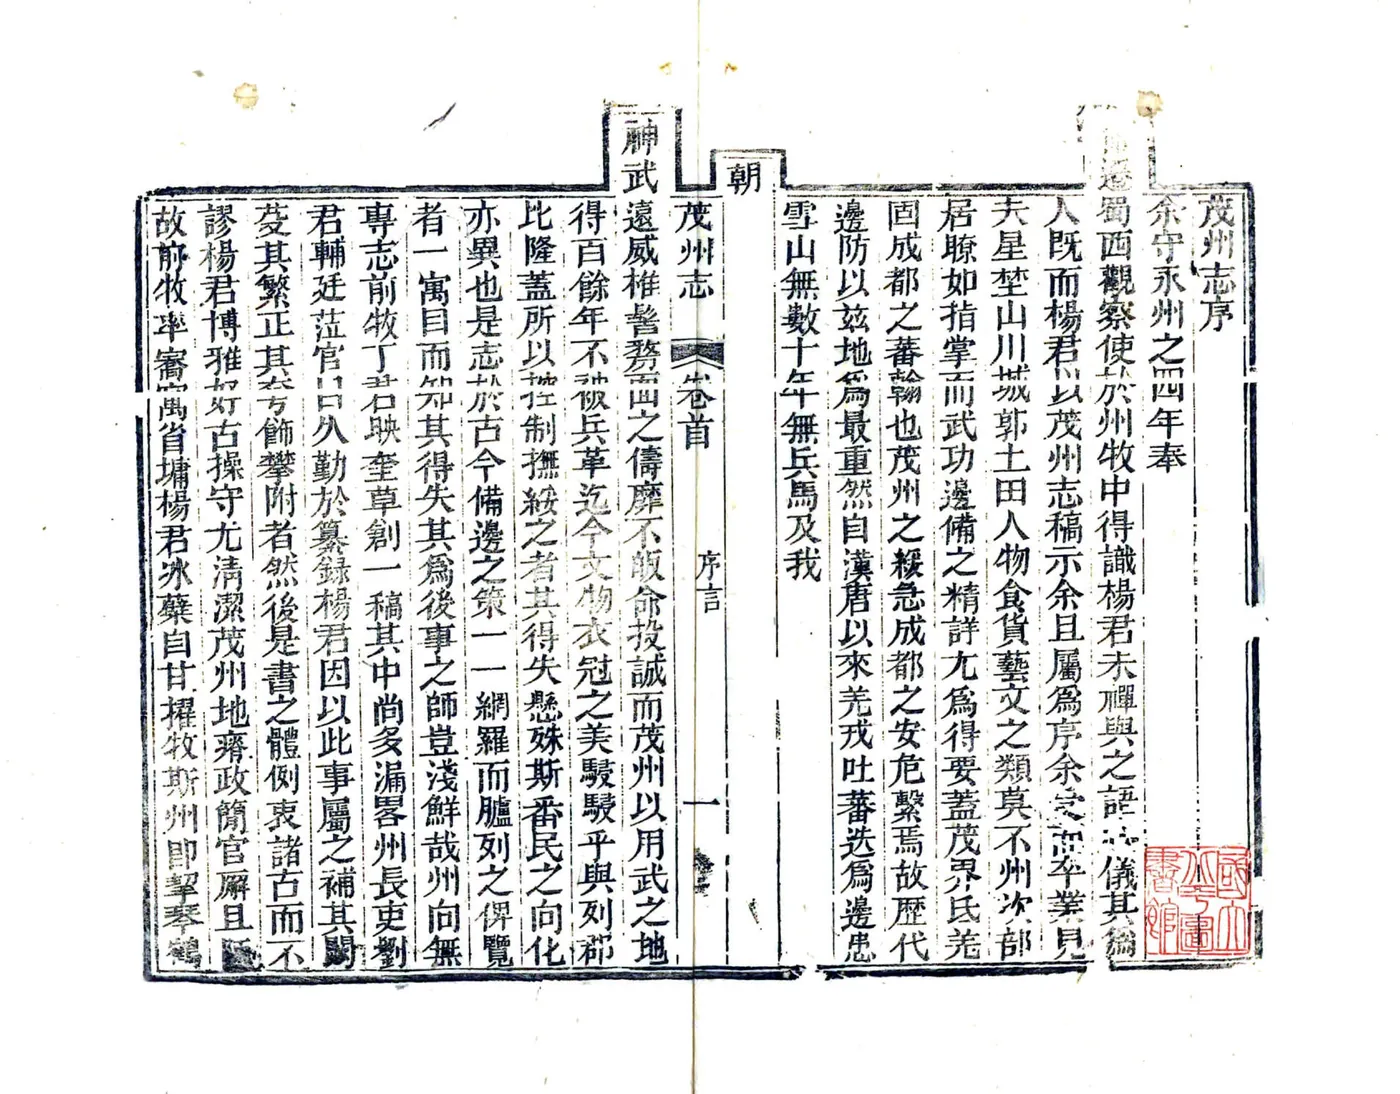 茂州志序
余守永州之四年奉
遷蜀西觀察使於州牧中得識楊君未禪與之語心儀其爲
人既而楊君以茂州志稿示余且屬爲序余受而卒業見
夫星埜山川城郭土田人物食貨藝文之類莫不州次部
居瞭如指掌而武功邊備之精詳尤爲得要蓋茂界氐羌
固成都之蕃翰也茂州之緩急成都之安危繫焉故歷代
邊防以兹地爲最重然自漢唐以來羌戎吐蕃迭爲邊患
雪山無數十年無兵馬及我
朝
茂州志 卷首 序言 一
神武遠威椎髻剺面之儔靡不皈命投誠而茂州以用武之地
得百餘年不被兵革迄今文物衣冠之美駸駸乎與列郡
比隆蓋所以控制撫綏之者其得失懸殊斯番民之向化
亦異也是志於古今備邊之策一一網羅而臚列之俾覽
者一寓目而知其得失其爲後事之師豈淺鮮哉州向無
專志前牧丁君映奎草創一稿其中尚多漏畧州長吏劉
君輔廷蒞官日久勤於纂録楊君因以此事屬之補其闕
芟其繁正其夸飾攀附者然後是書之體例衷諸古而不
謬楊君博雅好古操守尤清潔茂州地瘠政簡官廨且
故前牧率寄寓省墉楊君冰蘗自甘擢牧斯州即挈琴鶴
國立北平圖書館